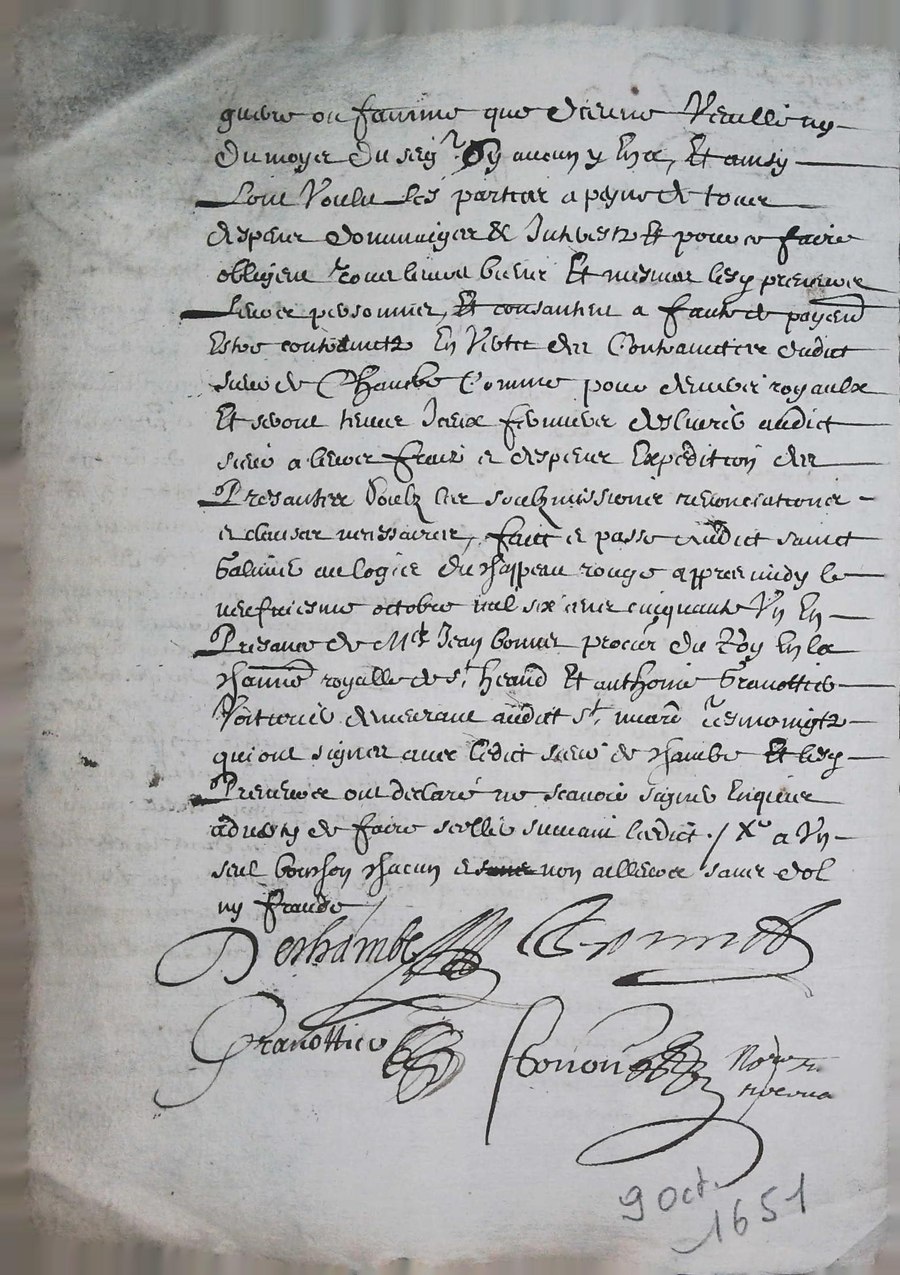 guerre ou famine que Dieu ne Veuille ny
du moyen du seigr. ny aucun y En a, Et ainsy
L'ont Voulu Les parties a peyne de tous
despens dommaiges & Interestz Et pour ce faire
obligent tous leurs biens Et mesmes lesd preneurs
Leurs personnes, Et consantent a faute de payemt
Estre contrainctz En Vertu des Contrainctes dudict
sieur de Chambe Comme pour deniers royaulx
Et seront tenus Iceux fermiers deslivrer audict
sieur a leurs frais e despens Expedition des
Presantes soulz les soulzmissions renonciations
e clauses necessaires, faict e passe audict sainct
Galmier au logis du chappeau rouge appres midy le
neufviesme octobre mil six cens cinquante Vn En
Presance de Me Jean bonnet procur. du Roy En la
royalle de St. heand Et anthoine Granottier
Voiturier demeurant audict St. tesmoingtz
qui ont signes avec ledict sieur de chambe Et lesd
Preneurs ont declaré ne scavoir signer Enquis
advertys de faire sceller suivant l'edict ./ Xe a Vn
seul bouchon chacun e non ailleurs sans dol
ny fraude
Deschambe
Bonnet
Granottier
9 Oct.
1651